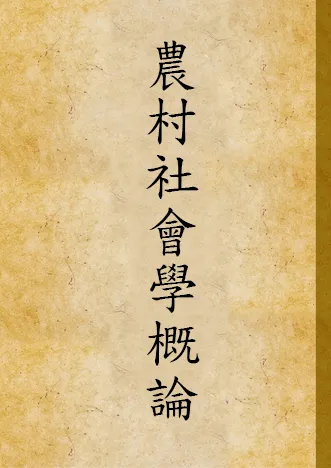 農村社會學概論